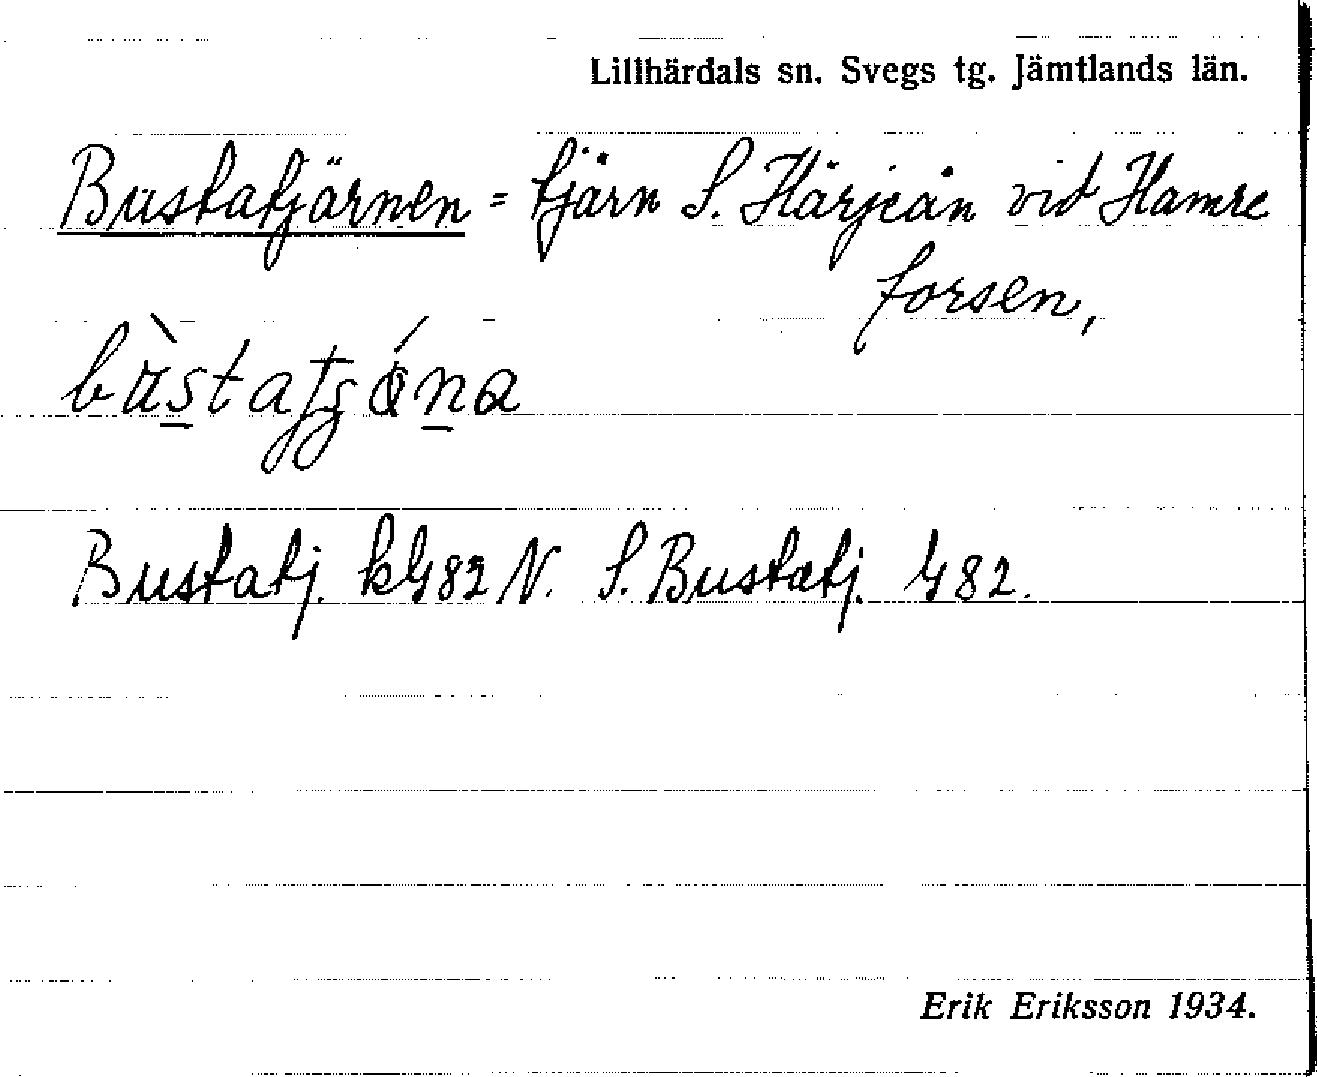 Lillhärdals sn. Svegs tg. Jämtlands län.
Bustatjärnen = tjärn S. Härjeån vid Hamre
forsen,
Bustatj. k 482 N. S. Bustatj. 482.
Erik Eriksson 1934.